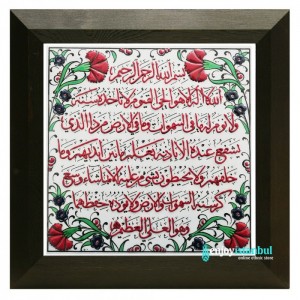 بسم الله الرحمن الرحيم
الله لا إله إلا هو الحي القيوم لا تأخذه سنة
ولا نوم له ما في السموات وما في الأرض من ذا الذي
يشفع عنده إلا بإذنه يعلم ما بين أيديهم وما
خلفهم ولا يحيطون بشيء من علمه إلا بما شاء وسع
كرسيه السموات والأرض ولا يؤده حفظهما
وهو العلي العظيم
enjoy istanbul
online ethnic store